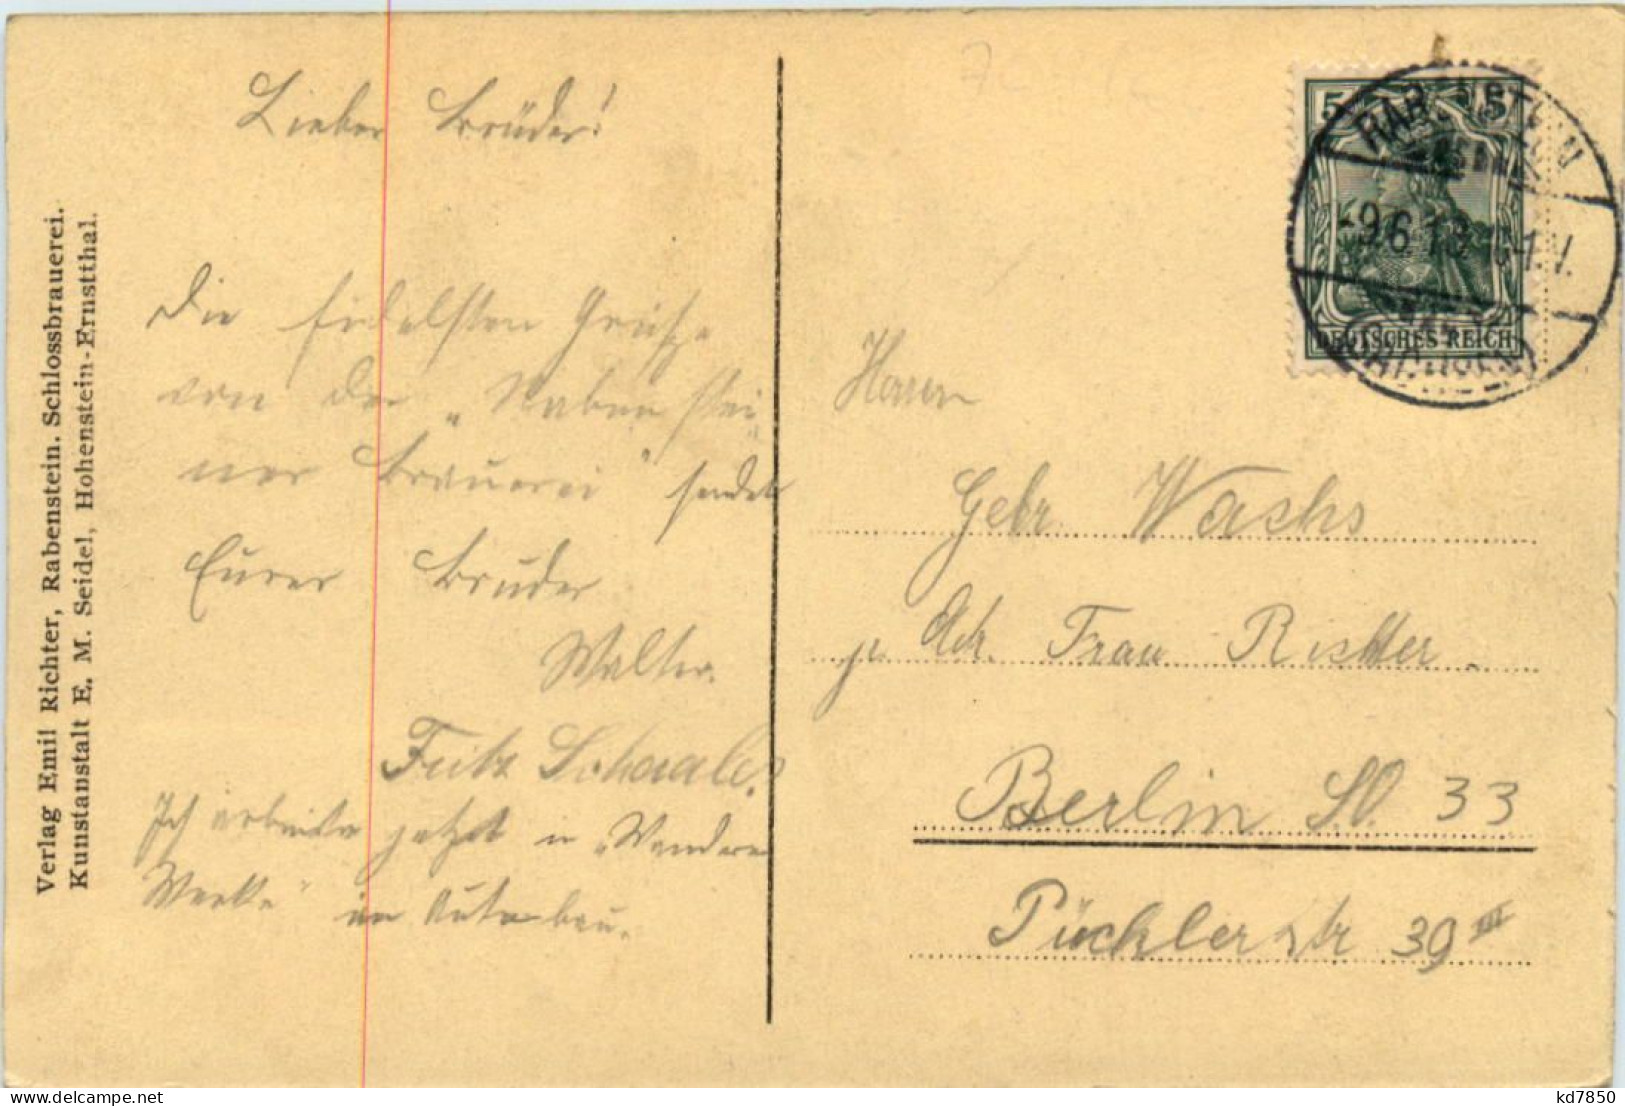 Verlag Emil Richter, Rabenstein. Schlossbrauerei.
Kunstanstalt E. M. Seidel, Hohenstein-Ernstthal.
Lieber Brüder!
Die fidelsten Grüße
von der „Rabenstei
ner Brauerei" sendet
Eurer Bruder
Walter.
Fritz Schaale.
Ich arbeite jetzt in „Wanderer
Werke" im Autobau.
5 5
DEUTSCHES REICH
RABENSTEIN
-9.6.13
Herrn
Gebr. Wachs
p. Adr. Frau Richter.
Berlin S.O. 33
Pücklerstr 39 III
kd7850